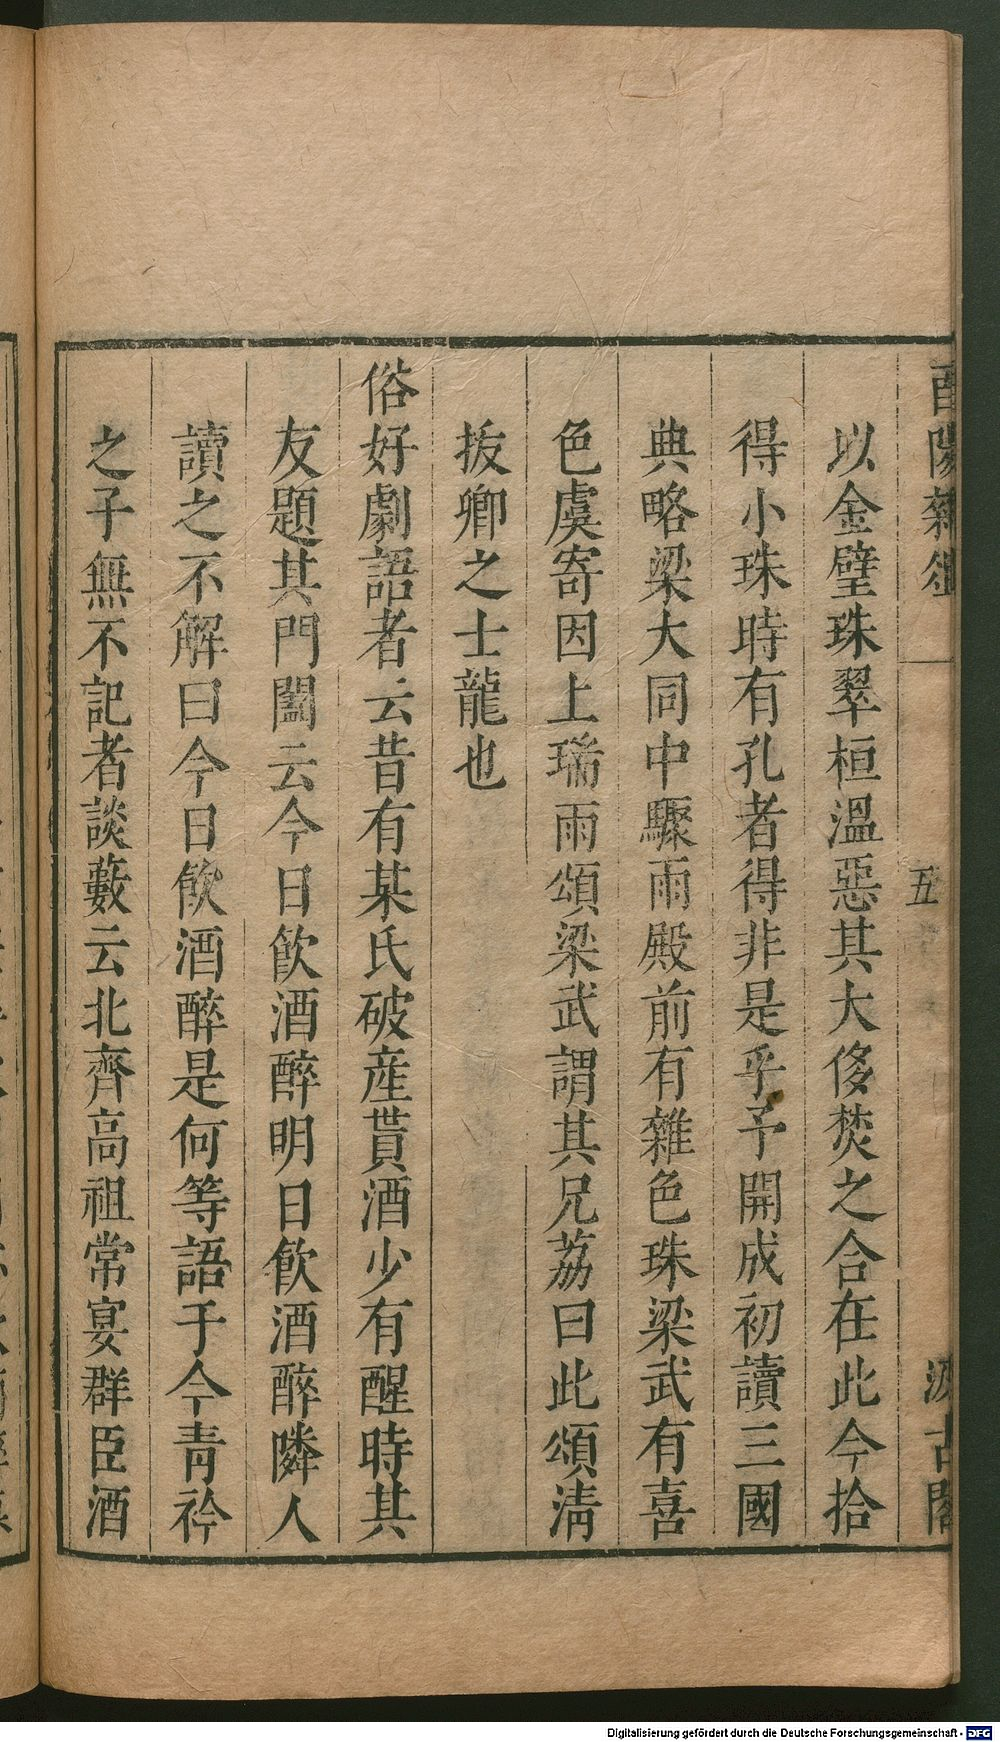 酉陽雜俎
五
汲古閣
以金璧珠翠桓溫惡其大侈焚之合在此今拾
得小珠時有孔者得非是乎予開成初讀三國
典略梁大同中驟雨殿前有雜色珠梁武有喜
色虞寄因上瑞雨頌梁武謂其兄荔曰此頌淸
拔卿之士龍也
俗好劇語者云昔有某氏破産貰酒少有醒時其
友題其門闔云今日飮酒醉明日飮酒醉隣人
讀之不解曰今日飮酒醉是何等語于今靑衿
之子無不記者談藪云北齊高祖常宴群臣酒
Digitalisierung gefördert durch die Deutsche Forschungsgemeinschaft - DFG